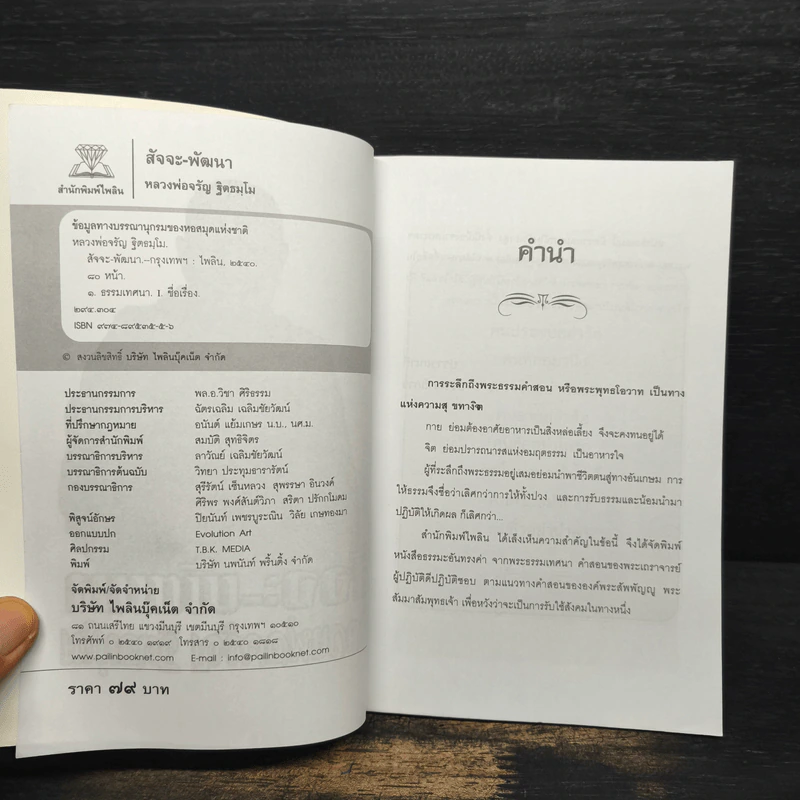 สำนักพิมพ์ไพลิน
สัจจะ-พัฒนา
หลวงพ่อจรัญ ฐิตธมฺโม
ข้อมูลทางบรรณานุกรมของหอสมุดแห่งชาติ
หลวงพ่อจรัญ ฐิตธมฺโม.
สัจจะ-พัฒนา.--กรุงเทพฯ : ไพลิน, ๒๕๔๐.
๘๐ หน้า.
๑. ธรรมเทศนา. I. ชื่อเรื่อง.
๒๙๔.๓๐๔
ISBN ๙๗๔-๘๙๕๓๕-๕-๖
© สงวนลิขสิทธิ์ บริษัท ไพลินบุ๊คเน็ต จำกัด
ประธานกรรมการ พล.อ.วิชา ศิริธรรม
ประธานกรรมการบริหาร ฉัตรเฉลิม เฉลิมชัยวัฒน์
ที่ปรึกษากฎหมาย อนันต์ แย้มเกษร น.บ., นศ.ม.
ผู้จัดการสำนักพิมพ์ สมบัติ สุทธิจิตร
บรรณาธิการบริหาร ลาวัณย์ เฉลิมชัยวัฒน์
บรรณาธิการต้นฉบับ วิทยา ประทุมธารารัตน์
กองบรรณาธิการ สุรีรัตน์ เซ็นหลวง สุพรรษา อินวงค์
ศิริพร พงศ์สันต์วิภา สริดา ปรักกโมดม
พิสูจน์อักษร ปิยนันท์ เพชรบูระณิน วิลัย เกษทองมา
ออกแบบปก Evolution Art
ศิลปกรรม T.B.K. MEDIA
พิมพ์ บริษัท นพนันท์ พริ้นติ้ง จำกัด
จัดพิมพ์/จัดจำหน่าย
บริษัท ไพลินบุ๊คเน็ต จำกัด
๘๑ ถนนเสรีไทย แขวงมีนบุรี เขตมีนบุรี กรุงเทพฯ ๑๐๕๑๐
โทรศัพท์ ๐ ๒๕๔๐ ๑๙๑๙ โทรสาร ๐ ๒๕๔๐ ๑๘๑๘
www.pailinbooknet.com E-mail : info@pailinbooknet.com
ราคา ๗๙ บาท
คำนำ
การระลึกถึงพระธรรมคำสอน หรือพระพุทธโอวาท เป็นทาง
แห่งความสุ ขทางจิต
กาย ย่อมต้องอาศัยอาหารเป็นสิ่งหล่อเลี้ยง จึงจะคงทนอยู่ได้
จิต ย่อมปรารถนารสแห่งอมฤตธรรม เป็นอาหารใจ
ผู้ที่ระลึกถึงพระธรรมอยู่เสมอย่อมนำพาชีวิตตนสู่ทางอันเกษม การ
ให้ธรรมจึงชื่อว่าเลิศกว่าการให้ทั้งปวง และการรับธรรมและน้อมนำมา
ปฏิบัติให้เกิดผล ก็เลิศกว่า...
สำนักพิมพ์ไพลิน ได้เล็งเห็นความสำคัญในข้อนี้ จึงได้จัดพิมพ์
หนังสือธรรมะอันทรงค่า จากพระธรรมเทศนา คำสอนของพระเถราจารย์
ผู้ปฏิบัติดีปฏิบัติชอบ ตามแนวทางคำสอนขององค์พระสัพพัญญู พระ
สัมมาสัมพุทธเจ้า เพื่อหวังว่าจะเป็นการรับใช้สังคมในทางหนึ่ง